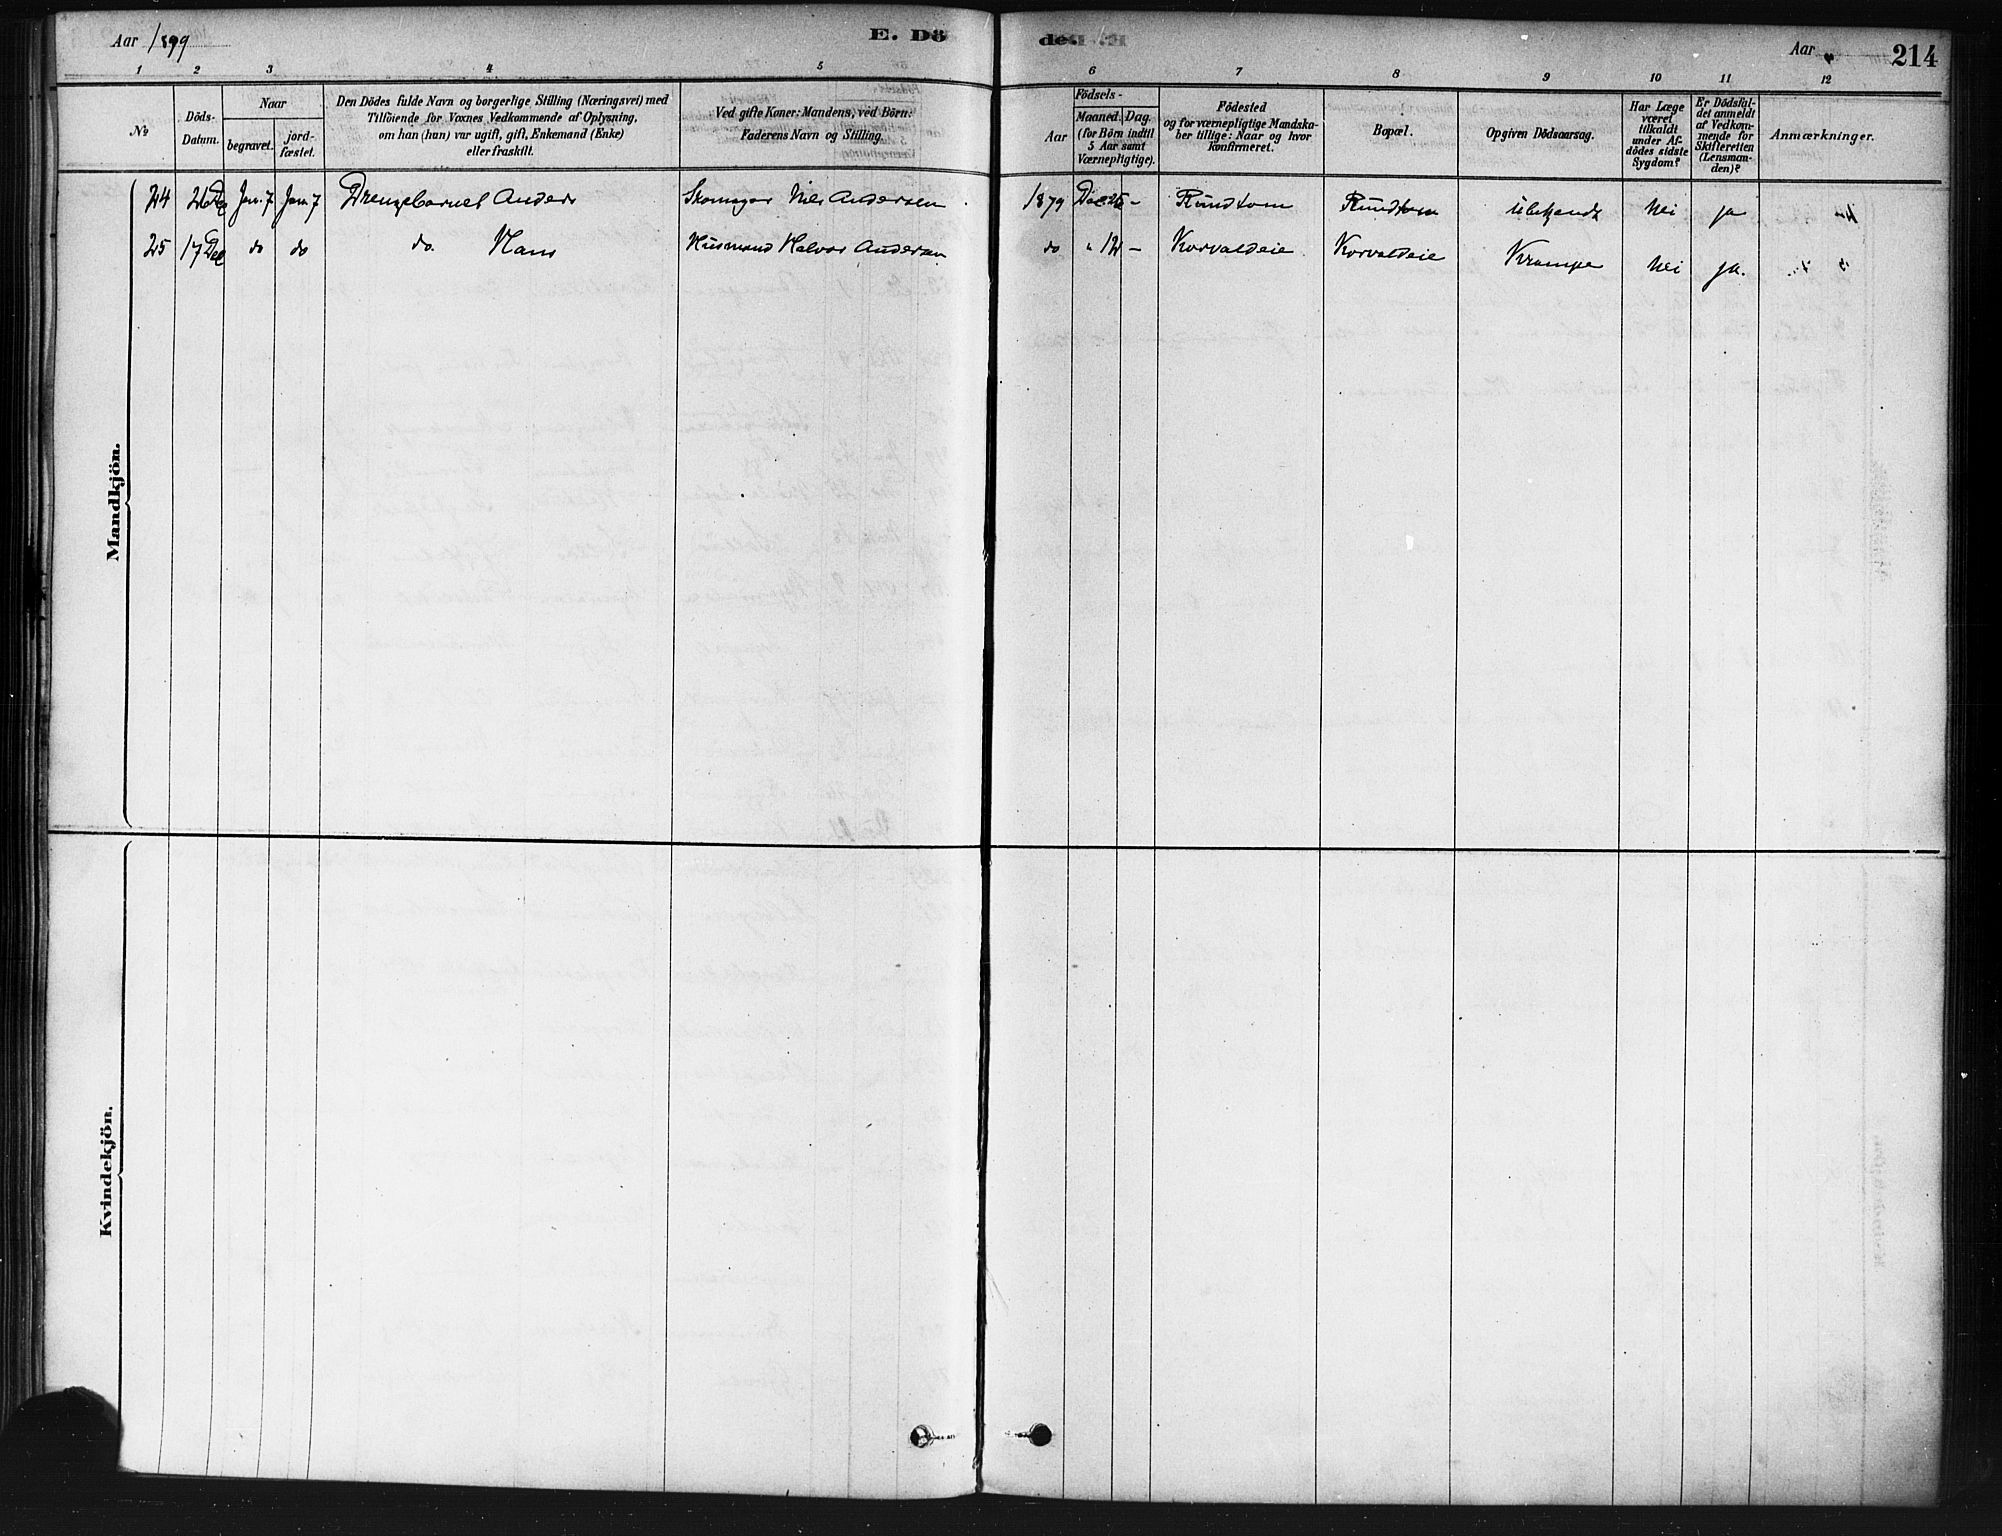 Aar 1899 E. Döde. Aar 214
1 2 3 4 5 6 7 8 9 10 11 12
No Döds-Datum. Naar begravet. jord-fæstet. Den Dödes fulde Navn og borgerlige Stilling (Næringsvei) med Tilföiende for Voxnes Vedkommende af Oplysning, om han (hun) var ugift, gift, Enkemand (Enke) eller fraskilt. Ved gifte Koner: Mandens, ved Börn: Faderens Navn og Stilling. Födsels- Aar Maaned. Dag. (for Börn indtil 5 Aar samt Værnepligtige). Födested og for værnepligtige Mandska-ber tillige: Naar og hvor Konfirmeret. Bopæl. Opgiven Dödsaarsag. Har Læge været tilkaldt under Af-dödes sidste Sygdom? Er Dödsfal-det anmeldt af Vedkom-mende for Skifteretten (Lensman-den)? Anmærkninger.
Mandkjön.
24 26 Dec Jan. 7 Jan. 7 Drengebarnet Anders Skomager Nils Andersen 1879 Dec 25 - Rundtom Rundtom Ubekjendt Nei ja
25 17 Dec do do do Hans Husmand Halvor Andersen do " 12 - Korvaldeie Korvaldeie Krampe Nei ja.
Kvindekjön.